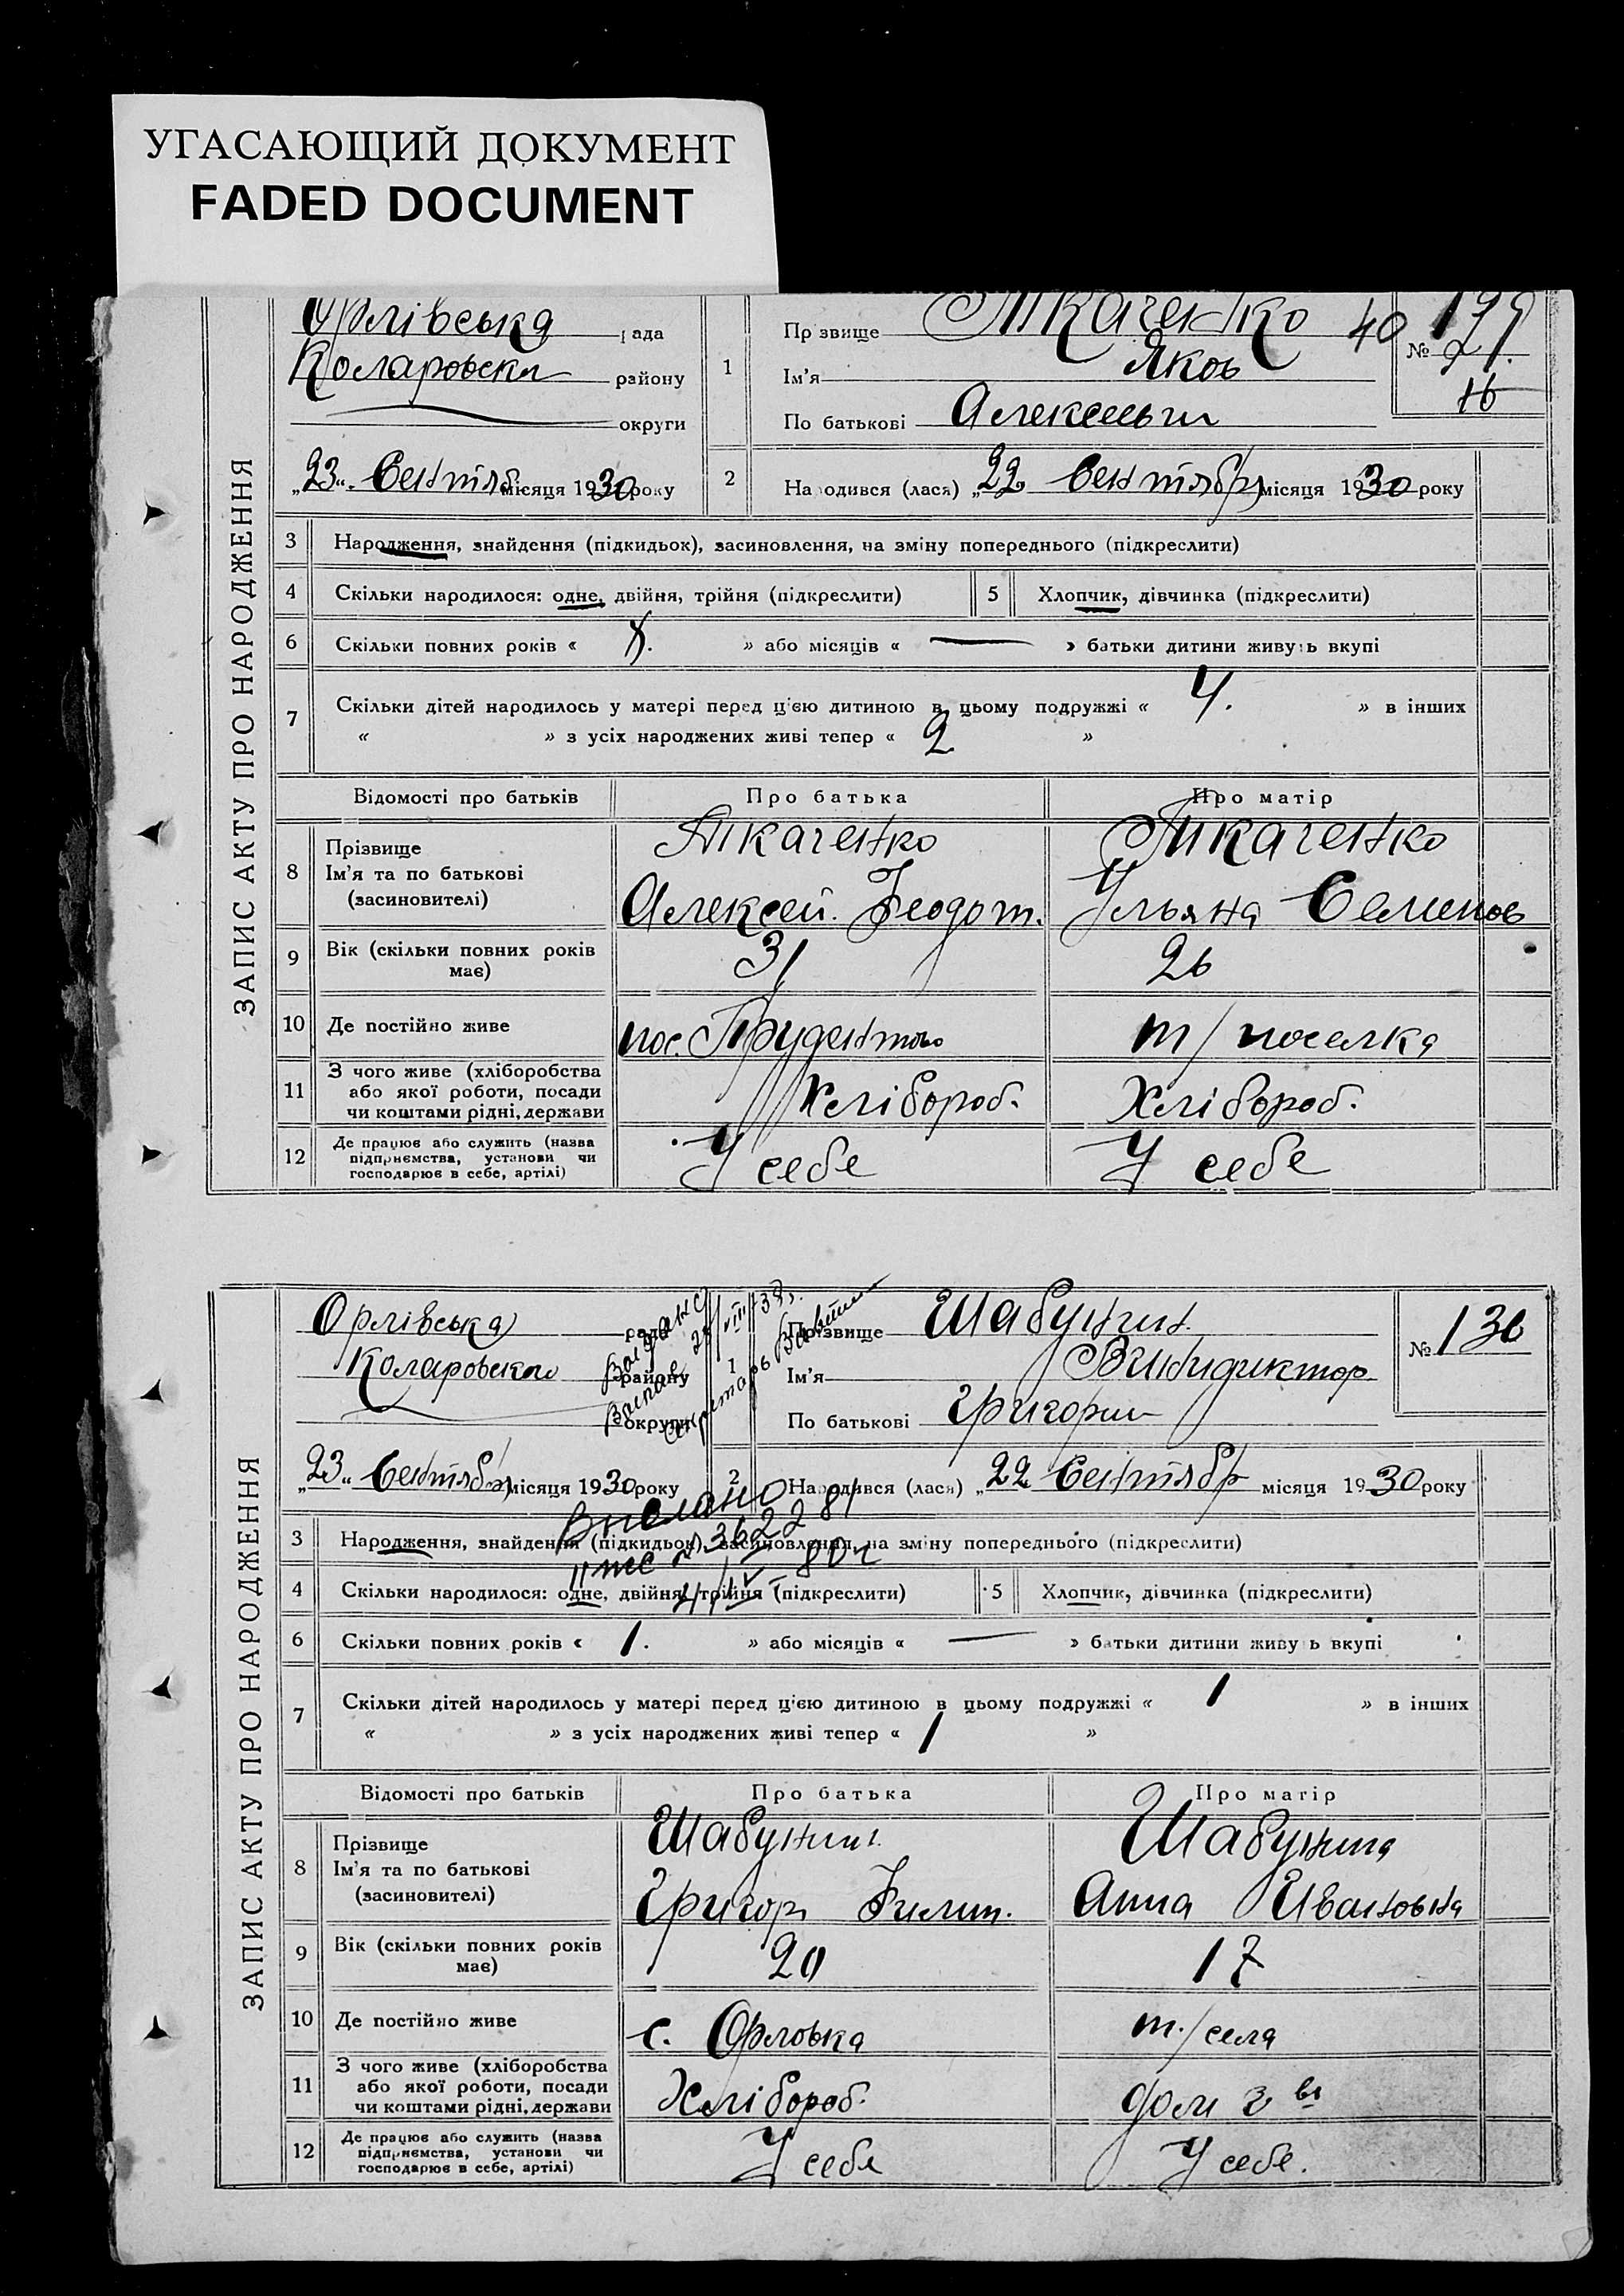 УГАСАЮЩИЙ ДОКУМЕНТ
FADED DOCUMENT
ЗАПИС АКТУ ПРО НАРОДЖЕННЯ
Орлівська рада
Коларовськ району
округи
„23„ Сентяб місяця 1930 року
1 Прізвище Ткаченко 40
Ім'я Яков
По батькові Алексеевич
№
16
2 Народився (лася) „22 Сентября місяця 1930 року
3 Народження, знайдення (підкидьок), засиновлення, на зміну попереднього (підкреслити)
4 Скільки народилося: одне, двійня, трійня (підкреслити) 5 Хлопчик, дівчинка (підкреслити)
6 Скільки повних років « » або місяців « — » батьки дитини живуть вкупі
7 Скільки дітей народилось у матері перед ц'єю дитиною в цьому подружжі « 4. » в інших
« » з усіх народжених живі тепер « 2 »
Відомості про батьків Про батька Про матір
8 Прізвище Ім'я та по батькові (засиновителі)
Ткаченко Ткаченко
Алексей. Феодот. Ульяна Семенов
9 Вік (скільки повних років має) 31 26
10 Де постійно живе пос. т/поселка
11 З чого живе (хліборобства або якої роботи, посади чи коштами рідні, держави Хлібороб. Хлібороб.
12 Де працює або служить (назва підприємства, установи чи господарює в себе, артілі) У себе У себе
ЗАПИС АКТУ ПРО НАРОДЖЕННЯ
Орлівська рада
Коларовськ району
округи
„23„ Сентября місяця 1930 року
1 Прізвище Шабунин
Ім'я Винидиктор
По батькові Григории
№ 130
2 Народився (лася) „22 Сентябр місяця 1930 року
Выслано
3 Народження, знайдення (підкидьок), засиновлення, на зміну попереднього (підкреслити)
4 Скільки народилося: одне, двійня, трійня (підкреслити) 5 Хлопчик, дівчинка (підкреслити)
6 Скільки повних років « 1. » або місяців « — » батьки дитини живу ь вкупі
7 Скільки дітей народилось у матері перед ц'єю дитиною в цьому подружжі « 1 » в інших
« » з усіх народжених живі тепер « 1 »
Відомості про батьків Про батька Про матір
8 Прізвище Ім'я та по батькові (засиновителі)
Шабунин Шабунина
Григор Филип. Анна Ивановна
9 Вік (скільки повних років має) 20 17
10 Де постійно живе с. Орловка т./села
11 З чого живе (хліборобства або якої роботи, посади чи коштами рідні, держави Хлібороб.
12 Де працює або служить (назва підприємства, установи чи господарює в себе, артілі) У себе У себе.